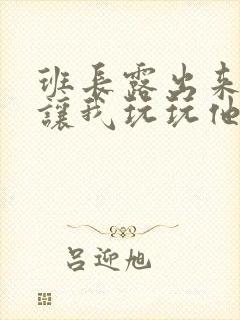 班長露出来
讓我玩玩他
吕迎旭